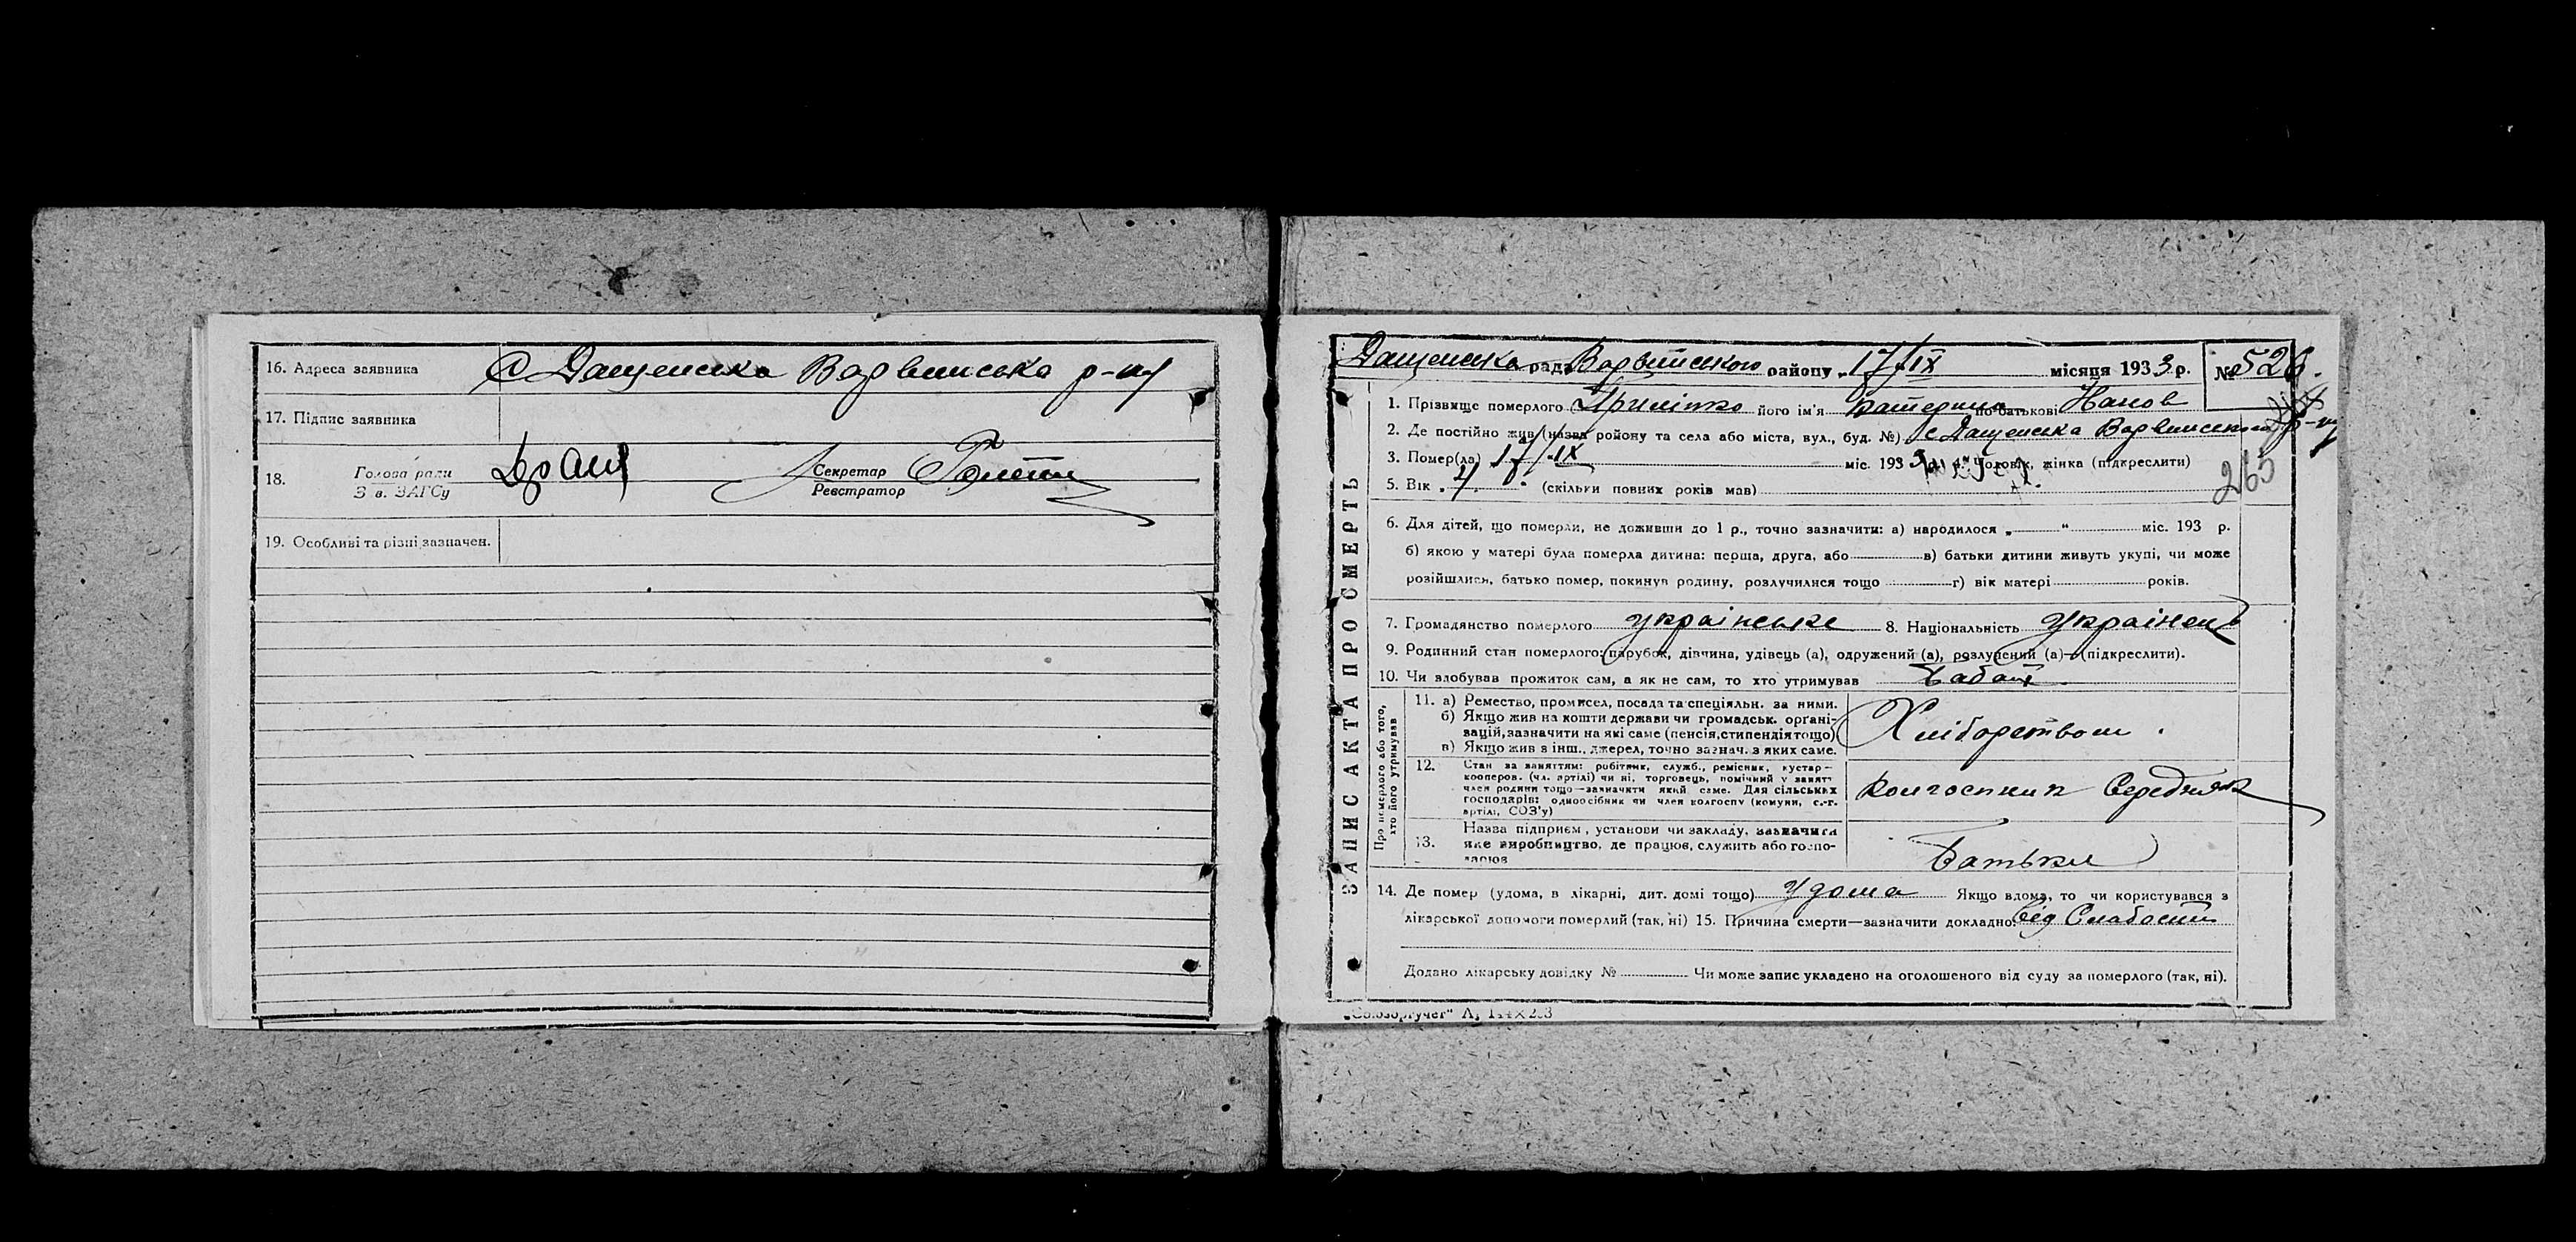 16. Адреса заявника С Дащенька Варвинська р-ну
17. Підпис заявника
18. Голова ради
З в. ЗАГСу
Секретар
Реєстратор
19. Особливі та різні зазначен.
ЗАПИС АКТА ПРО СМЕРТЬ
Дащенська рада Варвинського району „17/IX місяця 1933 р. № 526.
1. Прізвище померлого Приліпко його ім'я Катерина по-батькові Іванов
2. Де постійно жив (назва району та села або міста, вул., буд. №) с Дащенька Варвинський р-ну
3. Помер(ла) 17/IX міс. 193 4. Чоловік, жінка (підкреслити)
263
5. Вік „ (скільки повних років мав)
6. Для дітей, що померли, не доживши до 1 р., точно зазначити: а) народилося „ “ міс. 193 р.
б) якою у матері була померла дитина: перша, друга, або в) батьки дитини живуть укупі, чи може
розійшлися, батько помер, покинув родину, розлучилися тощо г) вік матері років.
7. Громадянство померлого українське 8. Національність українец
9. Родинний стан померлого: парубок, дівчина, удівець (а), одружений (а), розлучений (а)—(підкреслити).
10. Чи здобував прожиток сам, а як не сам, то хто утримував
Про померлого або того, хто його утримував
11. а) Ремество, промисел, посада та спеціяльн. за ними.
б) Якщо жив на кошти держави чи громадськ. органі-
зацій, зазначити на які саме (пенсія, стипендія тощо)
в) Якщо жив з інш., джерел, точно зазнач. з яких саме.
Хліборством.
12. Стан за заняттям: робітник, служб., ремісник, кустар—
кооперов. (чл. артілі) чи ні, торговець, помічний у занят.
член родини тощо—зазначити який саме. Для сільських
господарів: одноосібник чи член колгоспу (комуни, с.-г.
артілі, СОЗ'у)
колгоспник Середняк
13. Назва підприєм, установи чи закладу, зазначити
яке виробництво, де працюв, служить або госпо-
дарюв
Батьки
14. Де помер (удома, в лікарні, дит. домі тощо) У дома Якщо вдома, то чи користувався з
лікарської допомоги померлий (так, ні) 15. Причина смерти—зазначити докладно: від Слабости
Додано лікарську довідку № Чи може запис укладено на оголошеного від суду за померлого (так, ні).